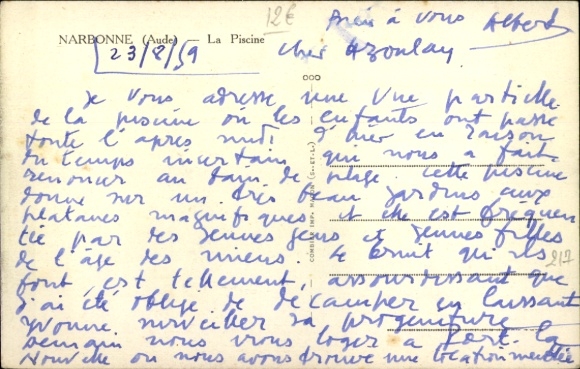 12€
Amis à vous Albert
NARBONNE (Aude) La Piscine
23/8/59
Cher Azoulay
Je vous adresse une vue partielle
de la piscine où les enfants ont passé
toute l'après midi d'hier en raison
du temps incertain qui nous a fait
renoncer au bain de plage. Cette piscine
donne sur un très beau jardins, aux
platanes magnifiques et elle est fréquen
tée par des jeunes gens et jeunes filles
de l'âge des miens. Le bruit qu'ils
217
font, est tellement, assourdissant que
j'ai été obligé de décamper en laissant
Yvonne surveiller sa progéniture
Demain nous irons loger à Port-La
Nouvelle où nous avons trouvé une location meublée
COMBIER IMP. MACON (S.-ET-L.)